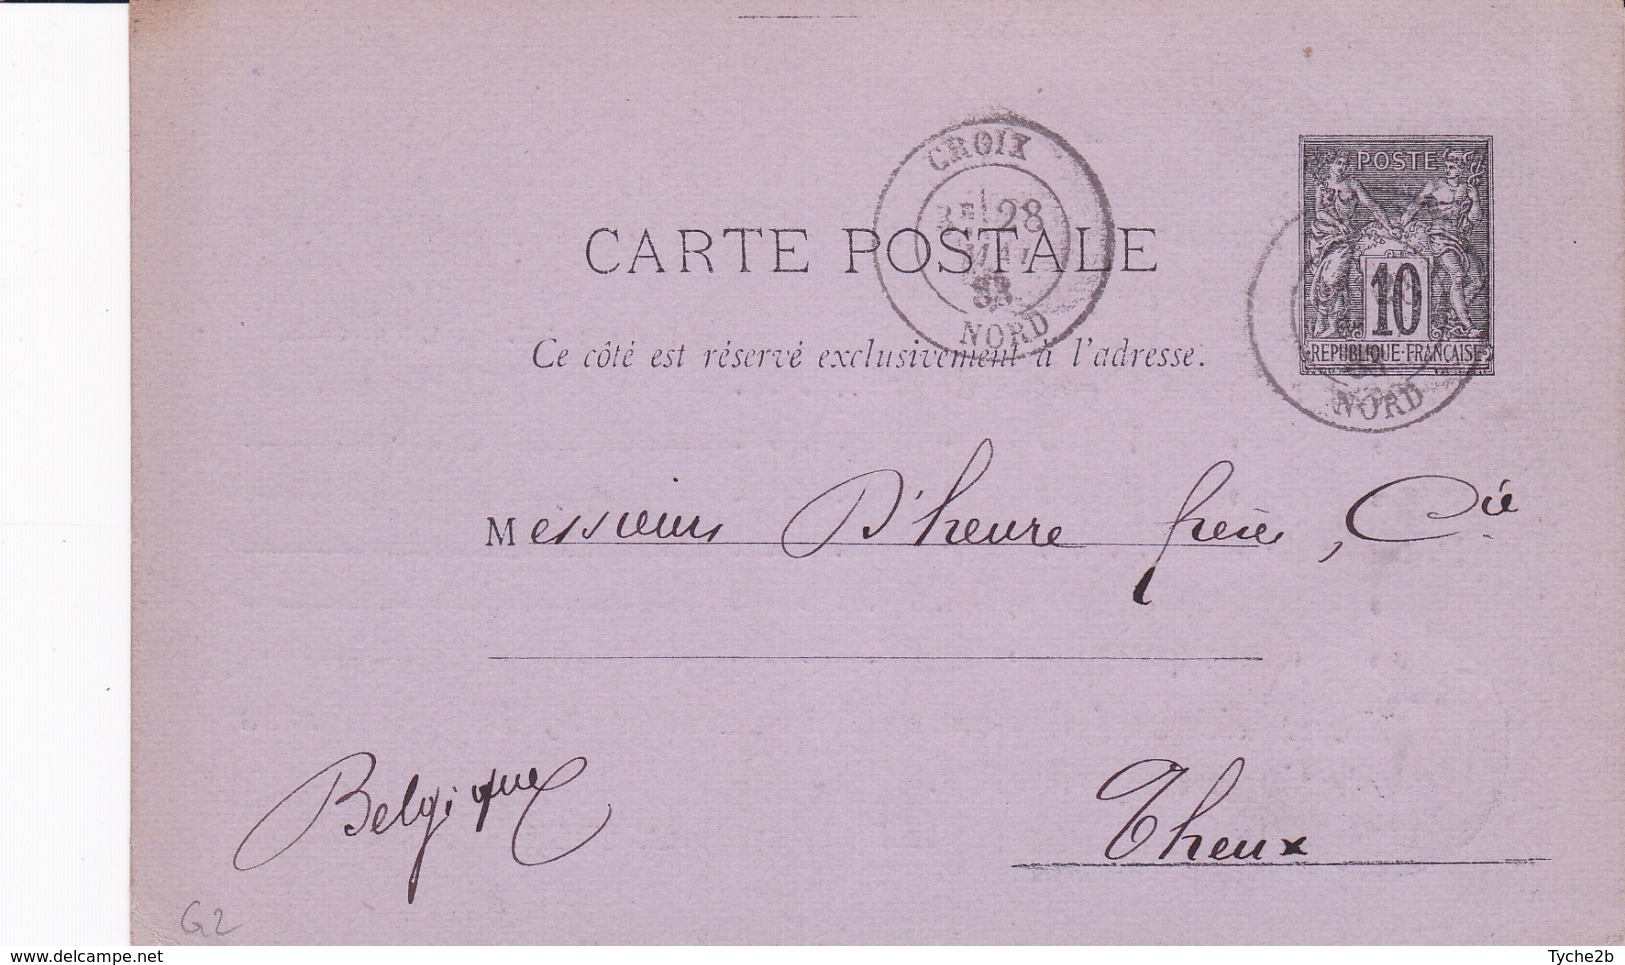 CROIX
28
83
NORD
POSTE
10
REPUBLIQUE·FRANÇAISE
NORD
CARTE POSTALE
Ce côté est réservé exclusivement à l'adresse.
Messieurs D'heure frères, Cie
Belgique
Theux
G2
delcampe.net
Tyche2b